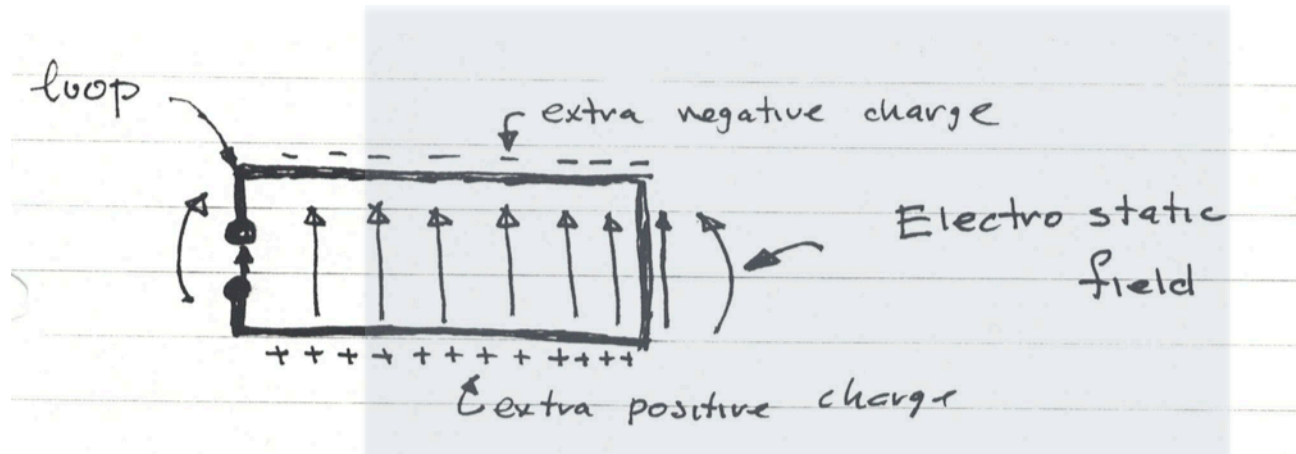 loop
extra negative charge
Electro static
field
extra positive charge